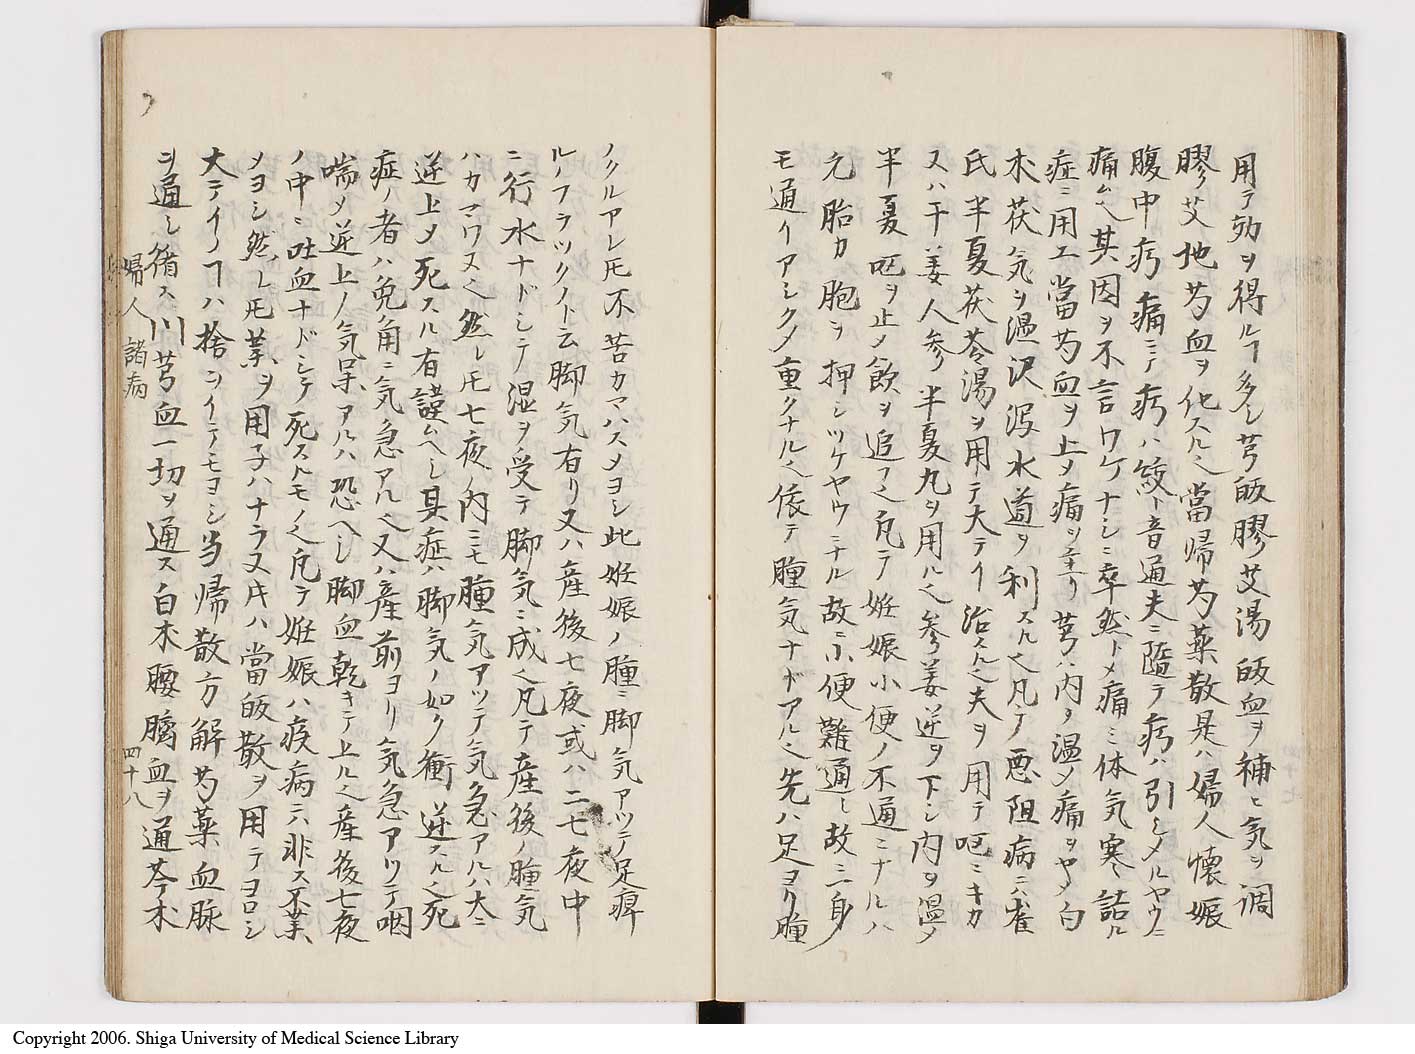 用テ効ヲ得ルヿ多シ芎皈膠艾湯皈血ヲ補ヒ気ヲ調
膠ノ艾地芍血ヲ化スル也當帰芍薬散是ハ婦人懐娠
腹中㽱痛ミテ㽱ハ絞ト音通夫ニ随テ㽱ハ引シメルヤウニ
痛ム也其因ヲ不言ワケナシニ卒然トメ痛ミ体気寒ヘ詰ル
症ニ用エ當芍血ヲ上メ痛ヲ主リ芎ハ内ヲ温メ痛ヲヤメ白
朮茯気ヲ温沢泻水道ヲ利スル也凡テ悪阻病ニハ雀
氏半夏茯苓湯ヲ用テ大テイ治スル也夫ヲ用テ呕ミキカ
スハ干姜人参半夏丸ヲ用ル也参姜逆ヲ下シ内ヲ温メ
半夏呕ヲ止メ飲ヲ追フ也凡テ妊娠小便ノ不通ニナルハ
元胎カ胞ヲ押シツケヤウニナル故ニ小便難通シ故ニ身
モ通イアシクメ重クナル也依テ腫気ナドアル也先ハ足ヨリ腫
ノクルアレ𪜈不苦カマハスメヨシ此妊娠ノ腫ニ脚気アツテ足痺
ルノフラツクノト云脚気有リ又ハ産後七夜或ハ二七夜中
ニ行水ナドシテ湿ヲ受テ脚気ニ成也凡テ産後ノ腫気
ハカマワヌ也然レ𪜈七夜ノ内ニモ腫気アツテ気急アルハ大ニ
逆上メ死スル有謹ムヘシ其症ハ脚気ノ如ク衝逆スル也死
症ノ者ハ兔角ニ気急アル也又ハ産前ヨリ気急アリテ咽
喘メ逆上ノ気呆アルハ恐ヘシ脚血乾キテ上ル也産後七夜
ノ中ニ吐血ナドシテ死スルモノ也凡テ妊娠ハ疾病ニハ非ス不薬
メヨシ然レ𪜈薬ヲ用子ハナラヌ片ハ當皈散ヲ用テヨロシ
大テイノヿハ捨ヲイテモヨシ当帰散方解芍薬血脉
ヲ通シ循ス川芎血一切ヲ通ス白朮腰臍血ヲ通芩朮
婦人諸病
四十八